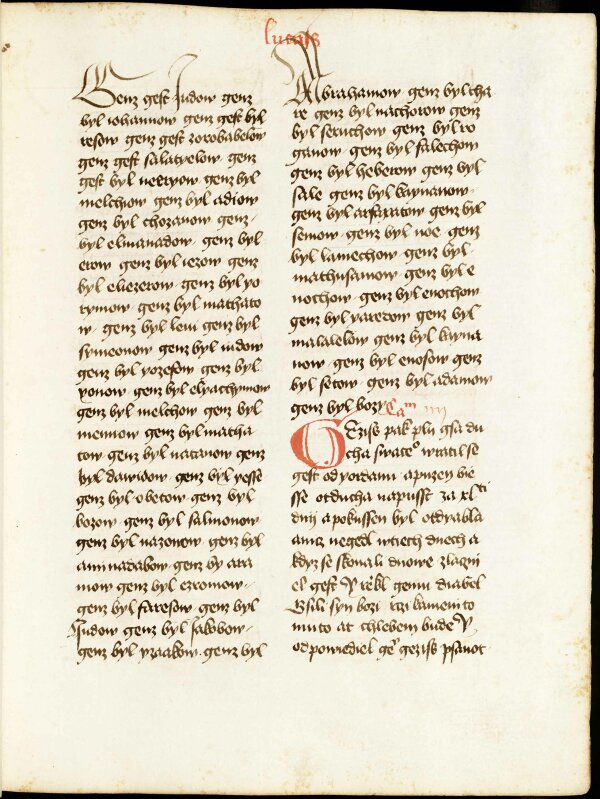 lucass
Genz gest Judow genz
byl iohannow genz gest byl
resow genz gest zorobabelow
genz gest salatyelow genz
gest byl neeryow genz byl
melchow genz byl adiow
genz byl chozanow genz
byl elmanadow genz byl
erow genz byl iezow genz
byl eliezerow genz byl yo
rymow genz byl mathato
w genz byl levi genz byl
symeonow genz byl iudow
genz byl yozefow genz byl
yonow genz byl elyachymow
genz byl melchow genz byl
mennow genz byl matha
tow genz byl natanow genz
byl dawidow genz byl yesse
genz byl obetow genz byl
bozow genz byl salmonow
genz byl nazonow genz byl
aminadabow genz by ara
mow genz byl ezromow
genz byl faresow genz byl
Judow genz byl jakubow
genz byl yzaakow genz byl
Abrahamow genz byl tha
re genz byl nachorow genz
byl seruchow genz byl ro
gauow genz byl falechow
genz byl heberow genz byl
sale genz byl kaynanow
genz byl arfaxatow genz byl
semow genz byl noe genz
byl lamechow genz byl
mathusamow genz byl e
nochow genz byl enochow
genz byl yaredow genz byl
malalelow genz byl kayna
now genz byl enosow genz
byl setow genz byl adamow
genz byl bozy Cam iiii
GEziss pak pln gsa du
cha swateo wratil se
gest od yordani apuzen bie
sse otducha napusst za xl ti
dnij apokussen byl otdyabla
aniz negedl wtiech dnech a
kdyz se skonali dnowe zlaczni
el gest A rzekl gemu diabel
Gsili syn bozi rci kameni to
muto at chlebem bude A
odpowiediel ge geziss psanot